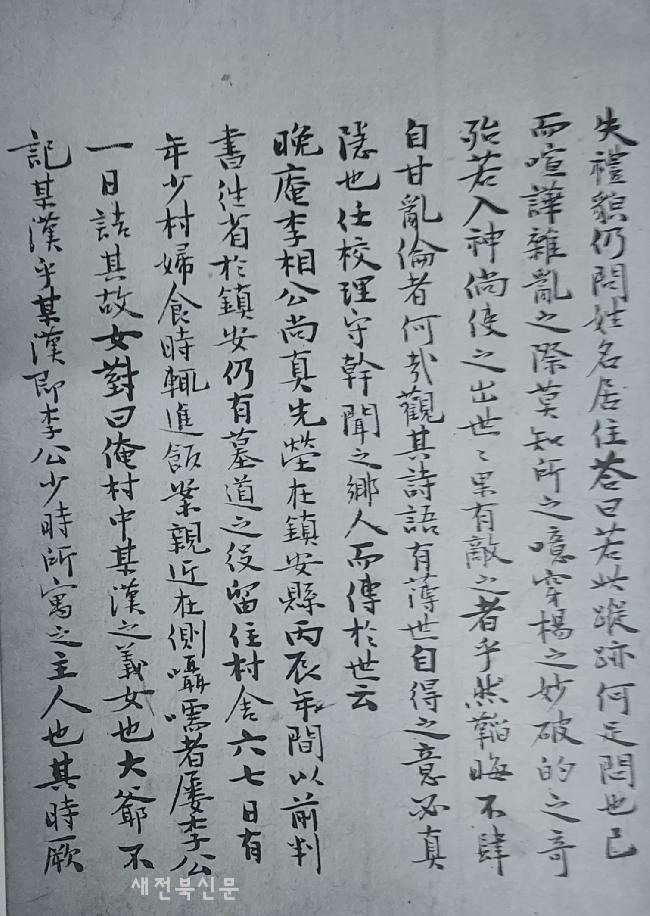 失禮貌仍問姓名居住答曰若此蹤跡何足問也已
而喧譁雜亂之際莫知所之噫穿楊之妙破的之奇
殆若入神倘使之出世〻果有敵之者乎然韜晦不肆
自甘亂倫者何哉觀其詩語有薄世自得之意必真
隱也任校理守幹聞之鄉人而傳於世云
晚庵李相公尚真先塋在鎮安縣丙辰年間以前判
書往省於鎮安仍有墓道之役留住村舍六七日有
年少村婦食時輒進飯業親近在側囁嚅者屢李公
一日詰其故女對曰俺村中某漢之義女也大爺不
記某漢乎某漢即李公少時所寓之主人也其時厥
새전북신문